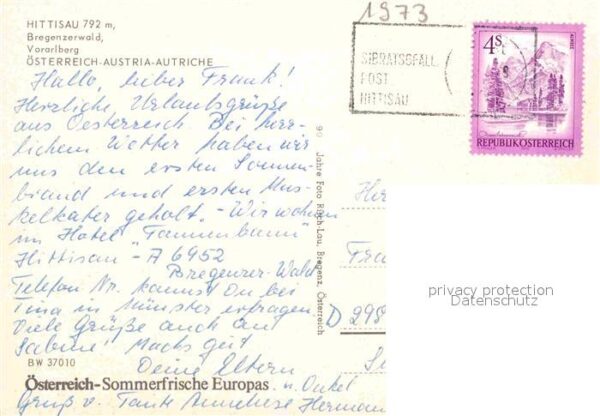 1973
HITTISAU 792 m,
Bregenzerwald,
Vorarlberg
ÖSTERREICH-AUSTRIA-AUTRICHE
SIBRATSGFÄLL
POST
HITTISAU
4 S
REPUBLIK ÖSTERREICH
Hallo, lieber Frank!
Herzliche Urlaubsgrüße
aus Oesterreich. Bei herr-
lichem Wetter haben wir
uns den ersten Sonnen-
brand und ersten Mus-
kelkater geholt. - Wir wohnen
im Hotel "Tannenbaum"
Hittisau - A 6952
Bregenzer-Wald
Telefon Nr. kannst Du bei
Tina in Münster erfragen
Viele Grüße auch an
Sabine! Machs gut
Deine Eltern
u. Onkel
Gruß v. Tante Annehese Hermann
BW 37010
Österreich-Sommerfrische Europas
90 Jahre Foto Risch-Lau, Bregenz, Österreich
Her
Fra
D 298
privacy protection
Datenschutz